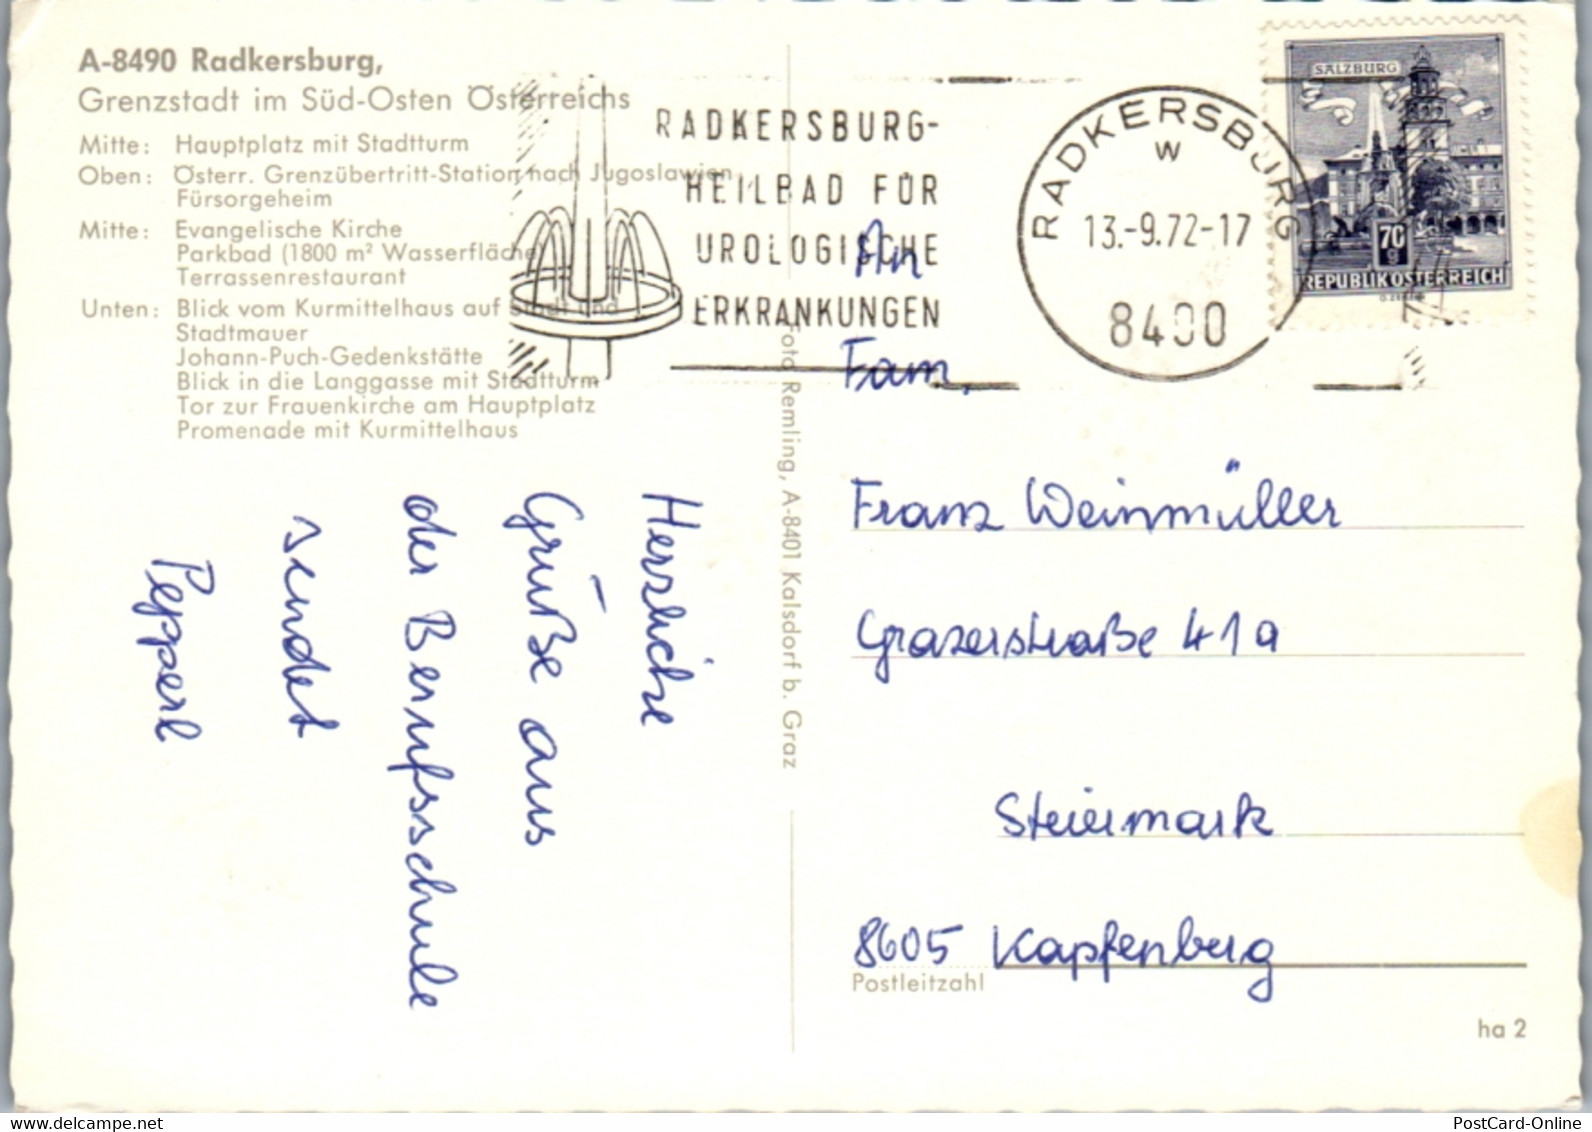 A-8490 Radkersburg,
Grenzstadt im Süd-Osten Österreichs
Mitte: Hauptplatz mit Stadtturm
Oben: Österr. Grenzübertritt-Station nach Jugoslawien
Fürsorgeheim
Mitte: Evangelische Kirche
Parkbad (1800 m² Wasserfläche)
Terrassenrestaurant
Unten: Blick vom Kurmittelhaus auf Stadt und
Stadtmauer
Johann-Puch-Gedenkstätte
Blick in die Langgasse mit Stadtturm
Tor zur Frauenkirche am Hauptplatz
Promenade mit Kurmittelhaus
RADKERSBURG-
HEILBAD FÜR
UROLOGISCHE
ERKRANKUNGEN
RADKERSBURG
w
13.-9.72-17
8490
SALZBURG
70
g
REPUBLIK ÖSTERREICH
Herzliche
Grüße aus
der Berufsschule
sendet
Pepperl
Foto Remling, A-8401 Kalsdorf b. Graz
An
Fam.
Franz Weinmüller
Grazerstraße 41a
Steiermark
8605 Kapfenberg
Postleitzahl
ha 2
PostCard-Online